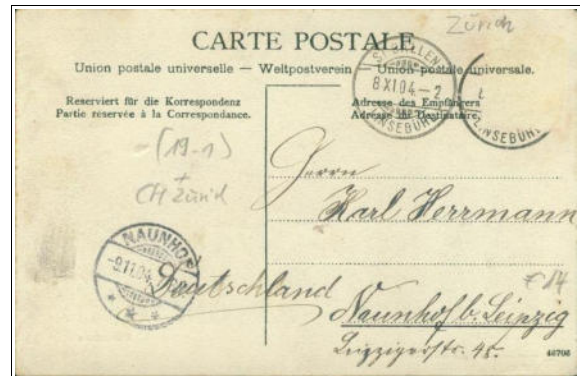 Zürich
CARTE POSTALE
Union postale universelle — Weltpostverein — Union postale universale.
Reserviert für die Korrespondenz
Partie réservée à la Correspondance.
Adresse des Empfängers
Adresse du Destinataire
ST. GALLEN
8 XI 04 - 2
LINSEBÜHL
LINSEBÜHL
(19-1)
+
CH Zürich
Herrn
Karl Herrmann
NAUNHOF
-9.11.04.
Deutschland
€ 14
Naunhof b. Leipzig
Leipzigerstr. 45.